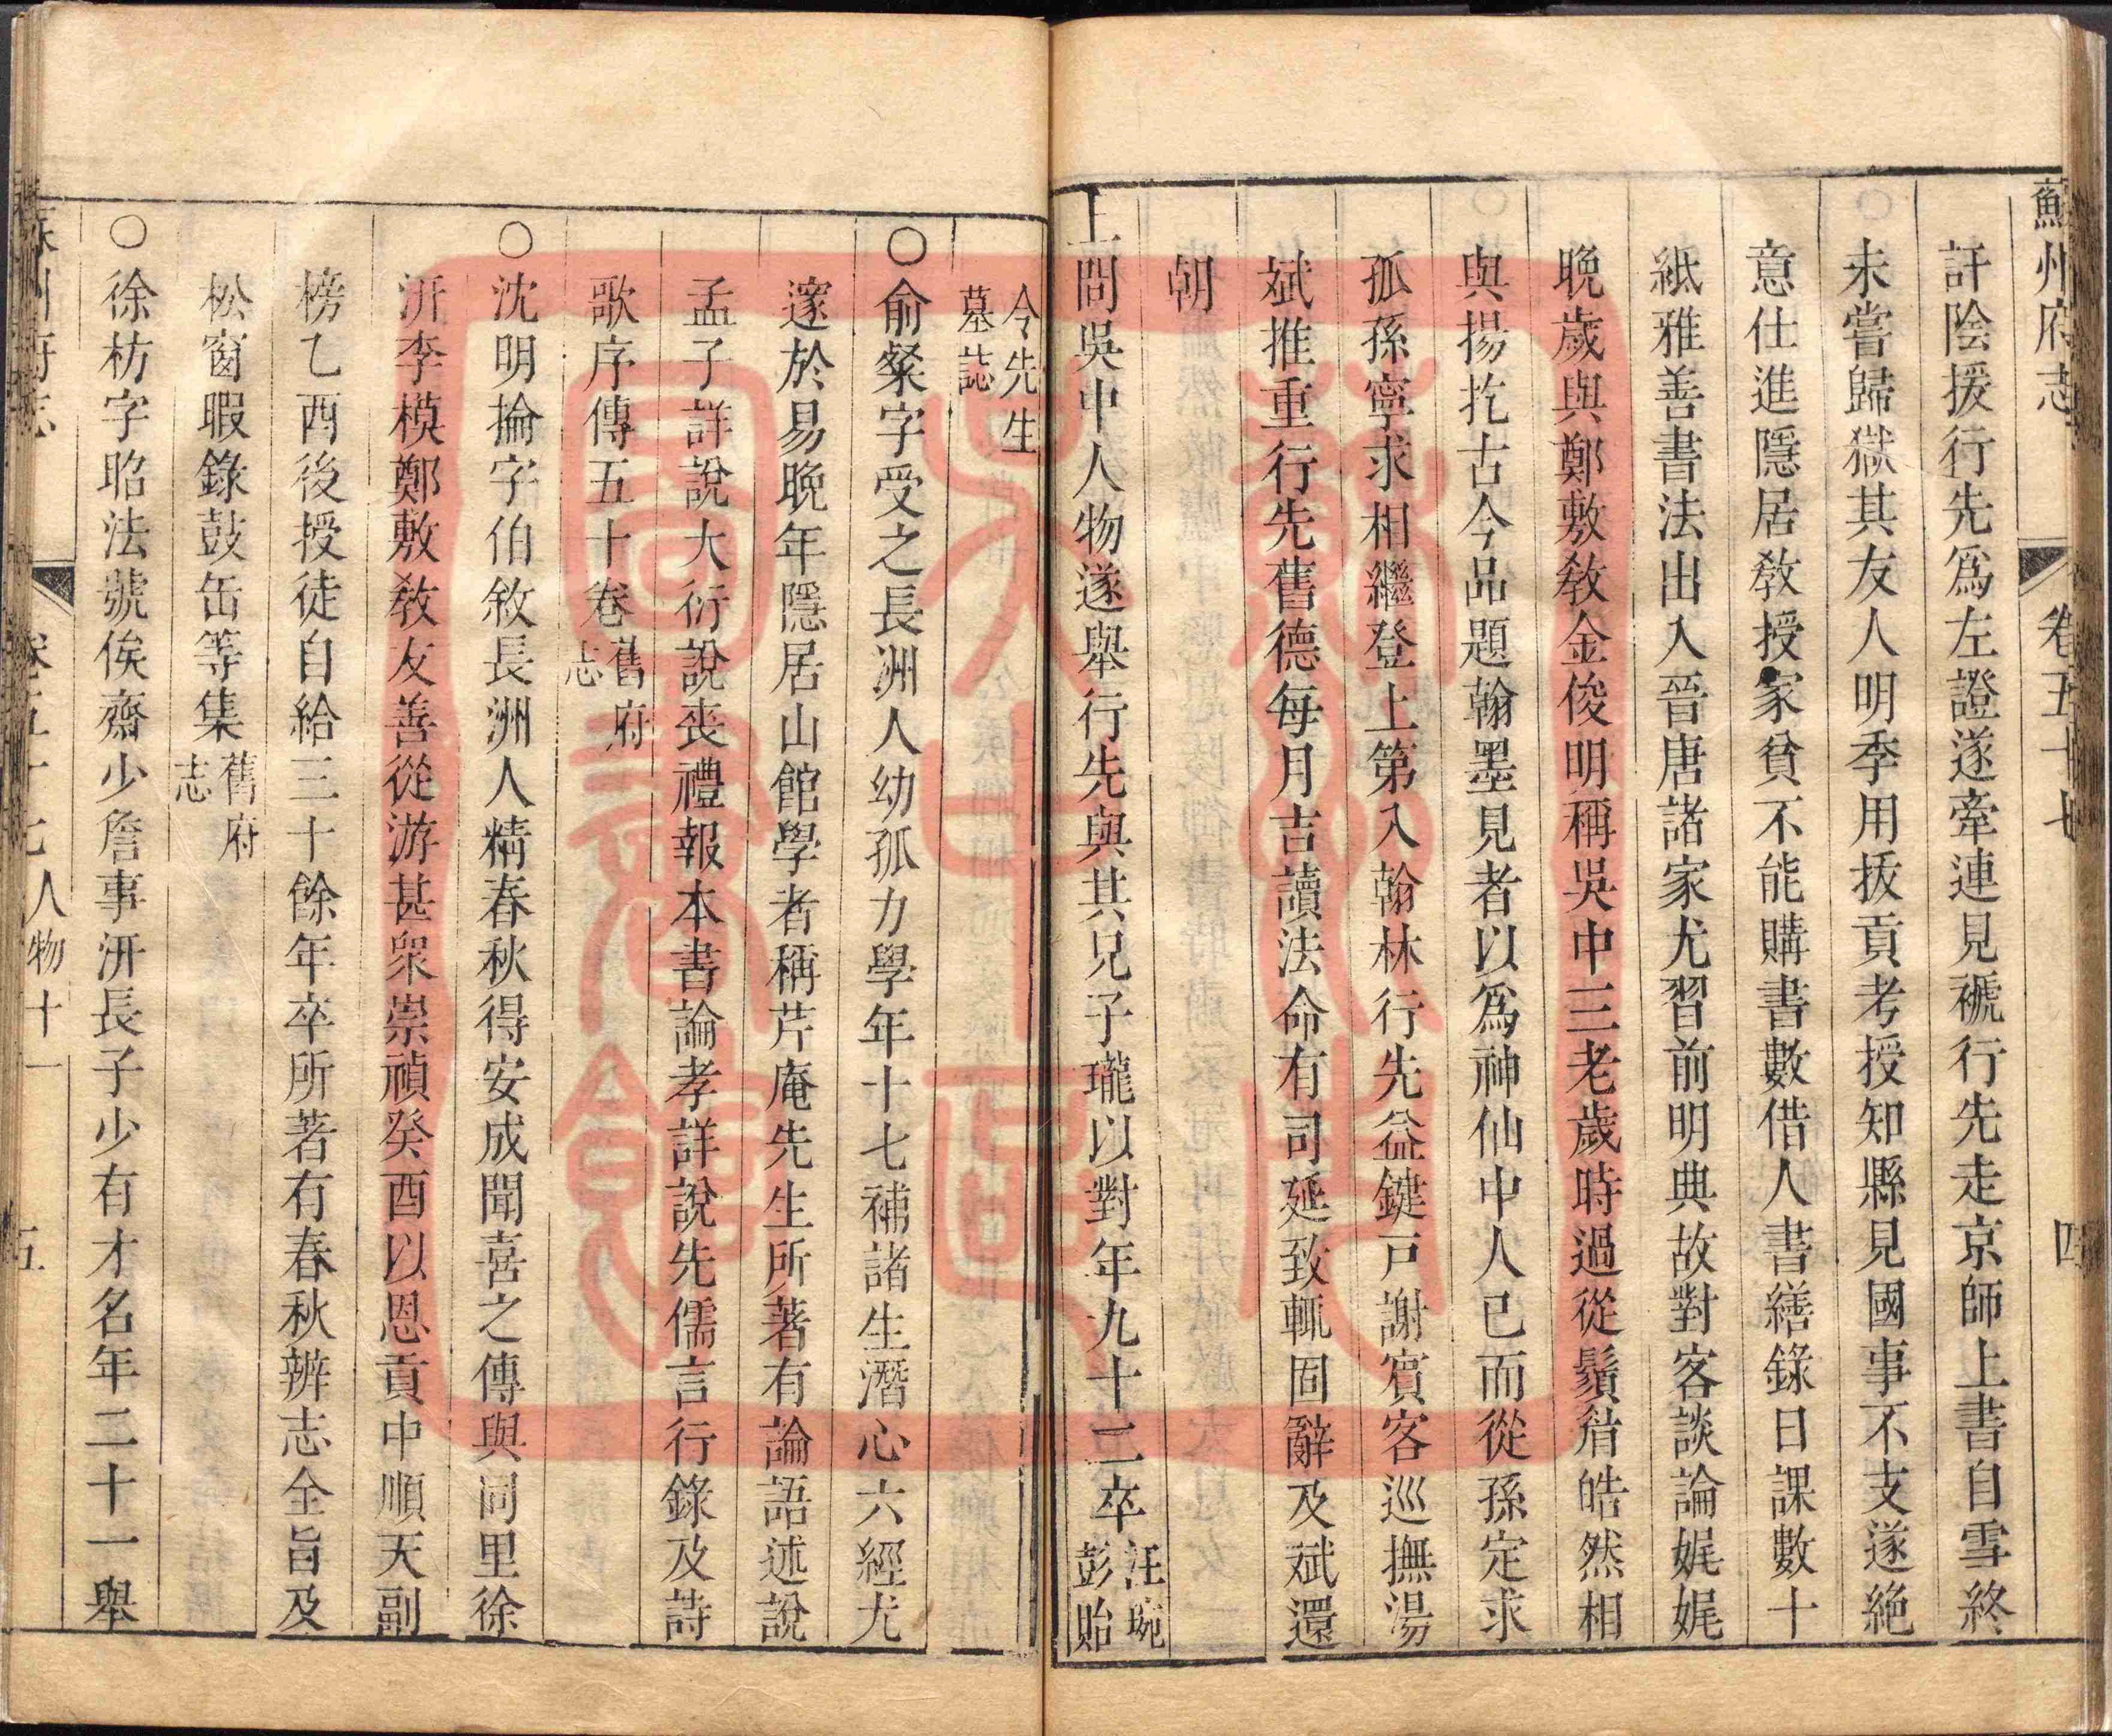 蘇州府志 卷五十七 四
訐陰援行先爲左證遂牽連見褫行先走京師上書自雪終
未嘗歸獄其友人明季用拔貢考授知縣見國事不支遂絕
意仕進隱居敎授家貧不能購書數借人書繕錄日課數十
紙雅善書法出入晉唐諸家尤習前明典故對客談論娓娓
晚歲與鄭敷敎金俊明稱吳中三老歲時過從鬚眉皓然相
與揚扢古今品題翰墨見者以爲神仙中人已而從孫定求
孤孫寧求相繼登上第入翰林行先益鍵戸謝賓客巡撫湯
斌推重行先舊德每月吉讀法命有司延致輒固辭及斌還
朝
上問吳中人物遂舉行先與其兄子瓏以對年九十二卒汪琬
彭貽
令先生
墓誌
○俞粲字受之長洲人幼孤力學年十七補諸生潛心六經尤
邃於易晚年隱居山館學者稱芹庵先生所著有論語述說
孟子詳說大衍說喪禮報本書論孝詳說先儒言行錄及詩
歌序傳五十卷舊府
志
○沈明掄字伯敘長洲人精春秋得安成聞喜之傳與同里徐
汧李模鄭敷敎友善從游甚衆崇禎癸酉以恩貢中順天副
榜乙酉後授徒自給三十餘年卒所著有春秋辨志全旨及
松窗暇錄鼓缶等集舊府
志
○徐枋字昭法號俟齋少詹事汧長子少有才名年二十一舉
蘇州府志 卷五十七 人物十一 五